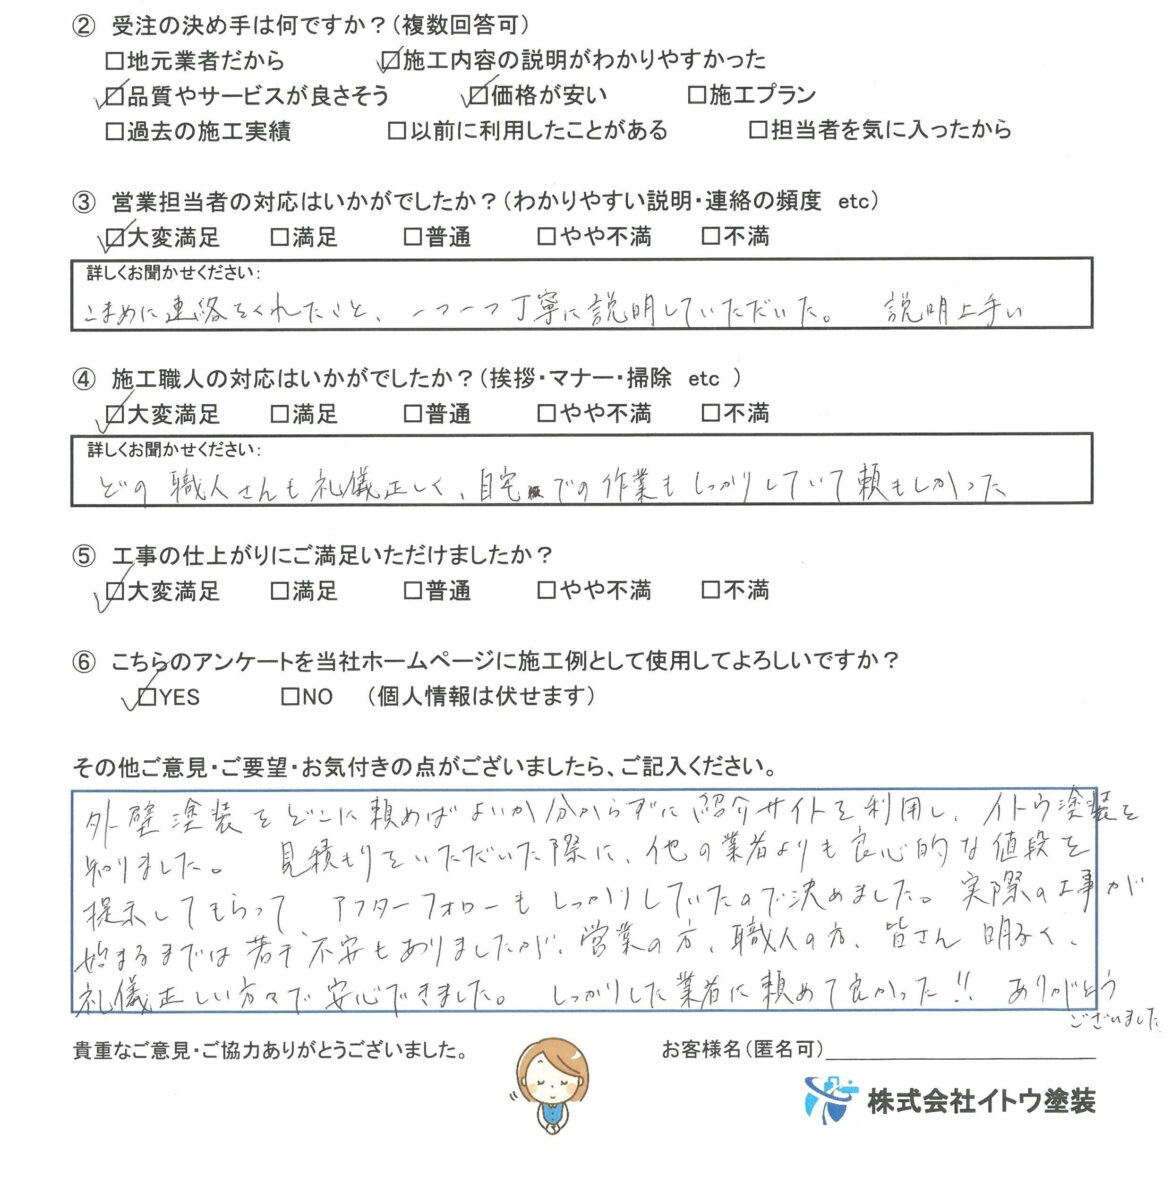 ② 受注の決め手は何ですか？(複数回答可)
□地元業者だから ☑施工内容の説明がわかりやすかった
☑品質やサービスが良さそう ☑価格が安い □施工プラン
□過去の施工実績 □以前に利用したことがある □担当者を気に入ったから
③ 営業担当者の対応はいかがでしたか？(わかりやすい説明・連絡の頻度 etc)
☑大変満足 □満足 □普通 □やや不満 □不満
詳しくお聞かせください:
こまめに連絡をくれたこと、一つ一つ丁寧に説明していただいた。 説明上手い
④ 施工職人の対応はいかがでしたか？(挨拶・マナー・掃除 etc )
☑大変満足 □満足 □普通 □やや不満 □不満
詳しくお聞かせください:
どの職人さんも礼儀正しく、自宅での作業もしっかりしていて頼もしかった
⑤ 工事の仕上がりにご満足いただけましたか？
☑大変満足 □満足 □普通 □やや不満 □不満
⑥ こちらのアンケートを当社ホームページに施工例として使用してよろしいですか？
☑YES □NO (個人情報は伏せます)
その他ご意見・ご要望・お気付きの点がございましたら、ご記入ください。
外壁塗装をどこに頼めばよいか分からずに紹介サイトを利用し、イトウ塗装を
知りました。 見積もりをいただいた際に、他の業者よりも良心的な値段を
提示してもらって、アフターフォローもしっかりしていたので決めました。実際の工事が
始まるまでは若干不安もありましたが、営業の方、職人の方、皆さん明るく、
礼儀正しい方々で安心できました。 しっかりした業者に頼めて良かった!! ありがとう
ございました
貴重なご意見・ご協力ありがとうございました。 お客様名(匿名可)
株式会社イトウ塗装